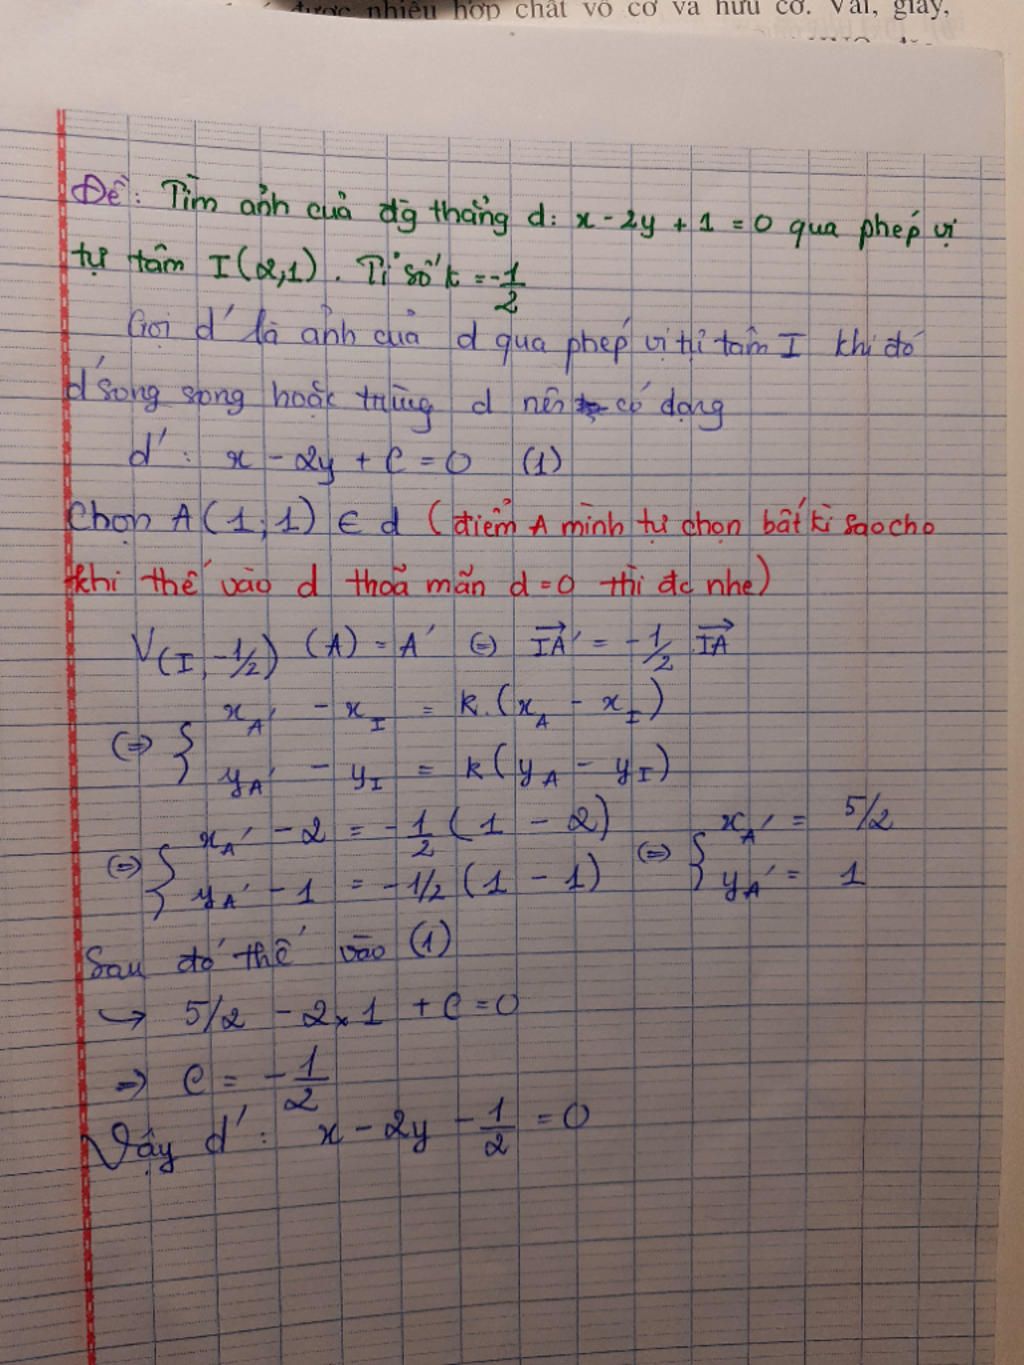 được nhiều hợp chất vô cơ và hữu cơ. Vải, giấy,
Đề: Tìm ảnh của đg thẳng d: x - 2y + 1 = 0 qua phép vị
tự tâm I(2,1). Tỉ số k = -1/2
Gọi d' là ảnh của d qua phép vị tự tâm I khi đó
d' song song hoặc trùng d nên có dạng
d': x - 2y + C = 0 (1)
Chọn A(1;1) ∈ d (điểm A mình tự chọn bất kì sao cho
khi thế vào d thoã mãn d = 0 thì đc nhe)
V(I, -1/2) (A) = A' (=) IA' = -1/2 IA
(=) { x_A' - x_I = k.(x_A - x_I)
y_A' - y_I = k(y_A - y_I)
(=) { x_A' - 2 = -1/2 (1 - 2) (=) { x_A' = 5/2
y_A' - 1 = -1/2 (1 - 1) y_A' = 1
Sau đó thế vào (1)
→ 5/2 - 2x1 + C = 0
⇒ C = -1/2
Vậy d': x - 2y - 1/2 = 0